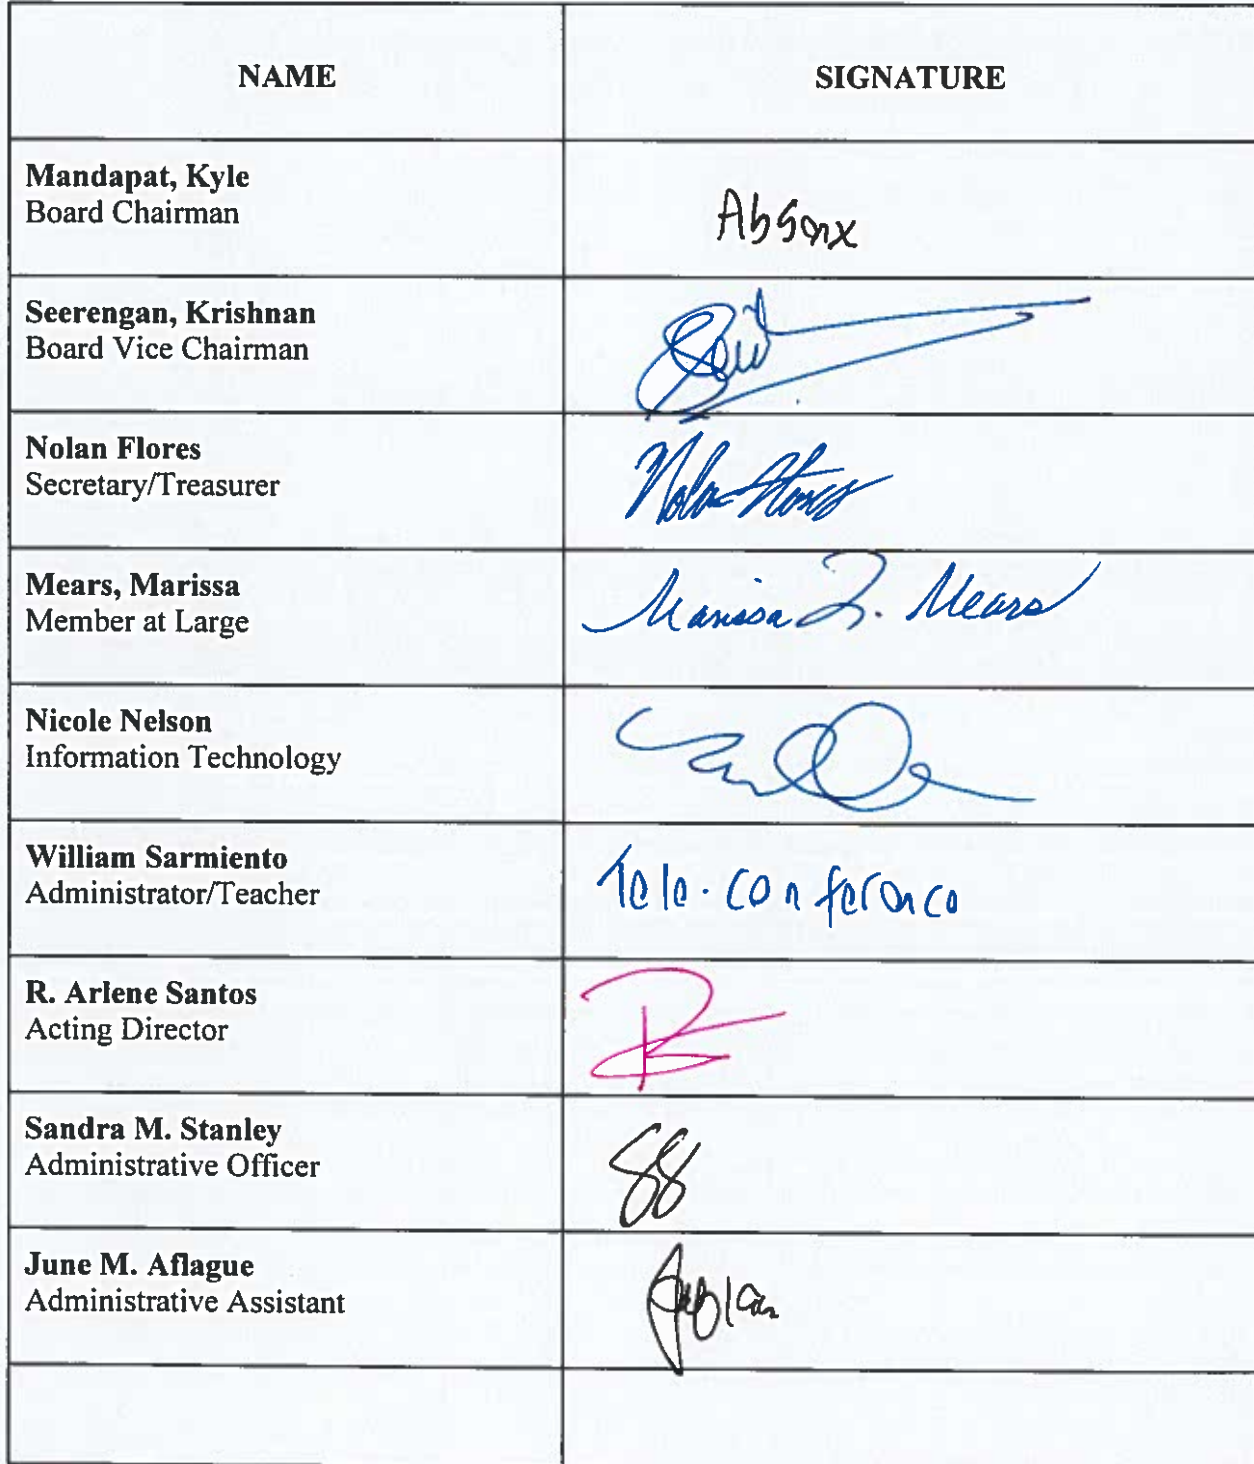 NAME
SIGNATURE
Mandapat, Kyle
Board Chairman
Absent
Seerengan, Krishnan
Board Vice Chairman
Nolan Flores
Secretary/Treasurer
Nolan Flores
Mears, Marissa
Member at Large
Marissa Z. Mears
Nicole Nelson
Information Technology
William Sarmiento
Administrator/Teacher
Tele-conference
R. Arlene Santos
Acting Director
Sandra M. Stanley
Administrative Officer
June M. Aflague
Administrative Assistant